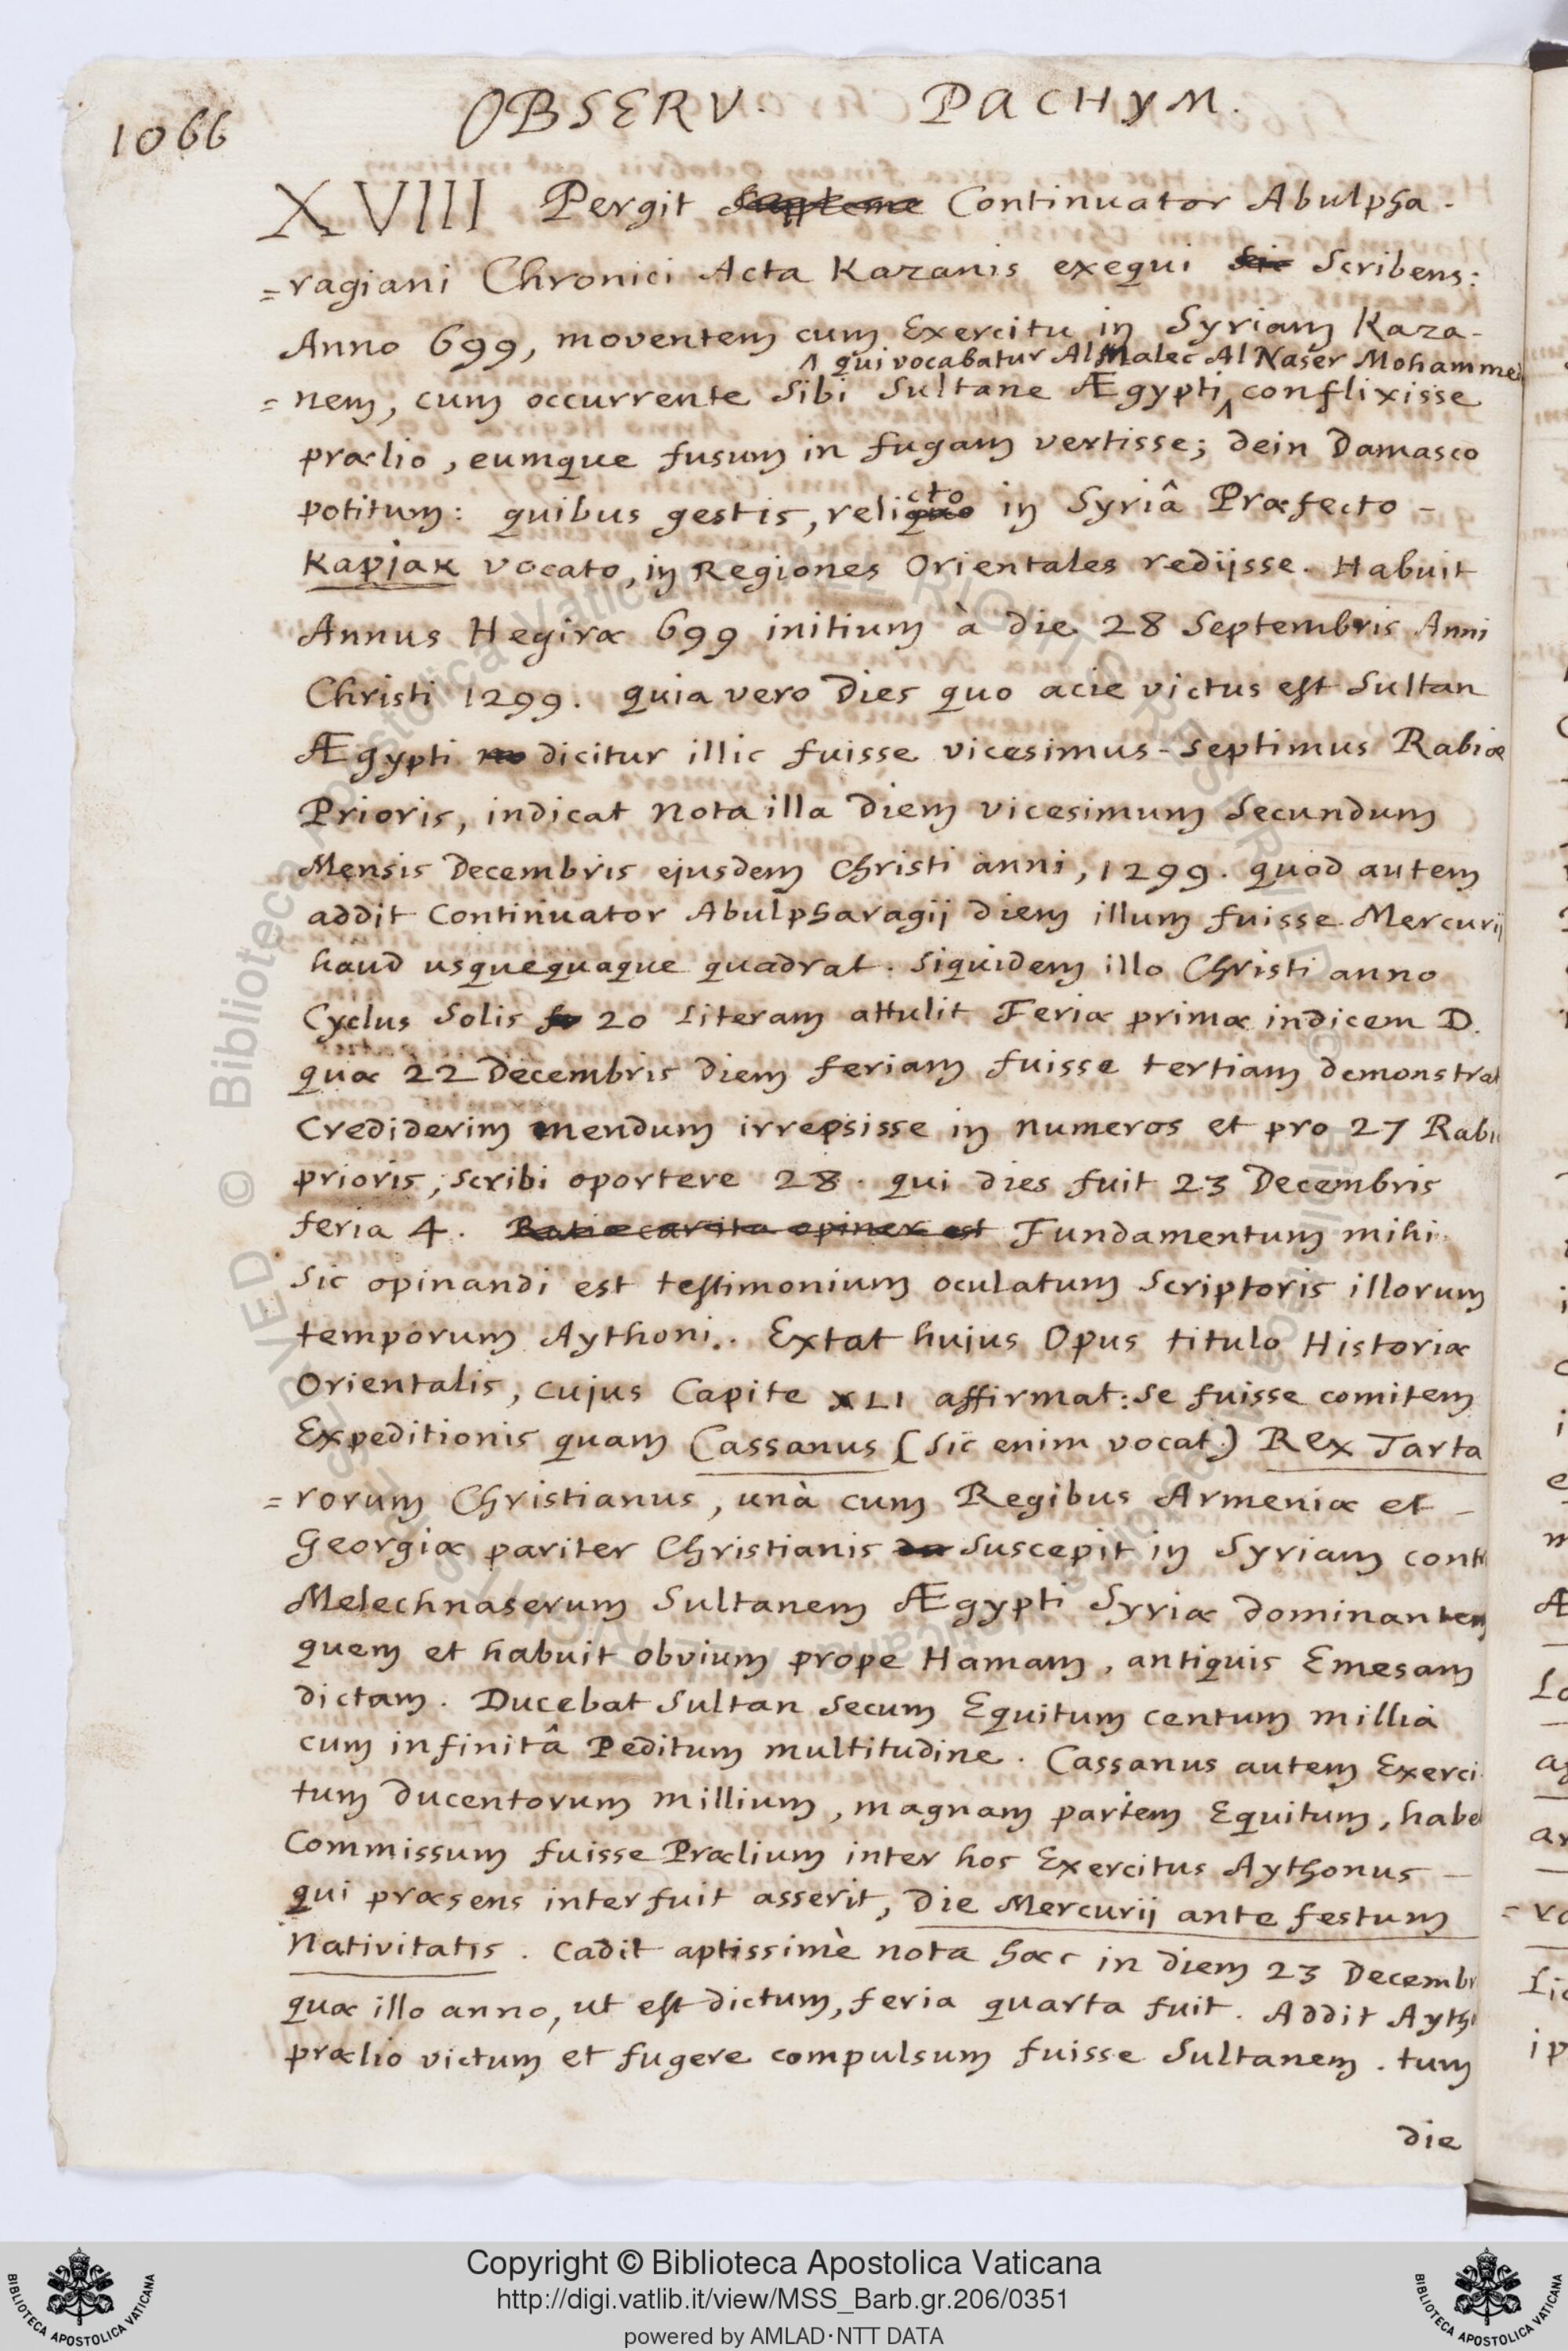 1066
OBSERV. PACHYM.
XVIII Pergit Continuator Abulpha-
=ragiani Chronici Acta Kazanis exequi sic Scribens:
Anno 699, moventem cum Exercitu in Syriam Kaza-
^ qui vocabatur Al Malec Al Naser Mohammed
=nem, cum occurrente sibi Sultane Ægypti ^ conflixisse
prælio, eumque fusum in fugam vertisse; dein Damasco
potitum: quibus gestis, relicto in Syriâ Præfecto -
Kapjak vocato, in Regiones Orientales redijsse. Habuit
Annus Hegiræ 699 initium à die 28 Septembris Anni
Christi 1299. quia vero Dies quo acie victus est Sultan
Ægypti no dicitur illic fuisse vicesimus-septimus Rabiæ
Prioris, indicat nota illa diem vicesimum secundum
Mensis Decembris ejusdem Christi anni, 1299. quod autem
addit Continuator Abulpharagij diem illum fuisse Mercurij
haud usquequaque quadrat. siquidem illo Christi anno
Cyclus Solis 20 Literam attulit Feriæ primæ indicem D.
quæ 22 Decembris diem feriam fuisse tertiam demonstrat
Crediderim mendum irrepsisse in numeros et pro 27 Rabi
prioris, scribi oportere 28. qui dies fuit 23 Decembris
feria 4. Fundamentum mihi
sic opinandi est testimonium oculatum Scriptoris illorum
temporum Aythoni. Extat hujus Opus titulo Historiæ
Orientalis, cujus Capite XLI affirmat: se fuisse comitem
Expeditionis quam Cassanus (sic enim vocat) Rex Tarta
=rorum Christianus, unà cum Regibus Armeniæ et -
Georgiæ pariter Christianis suscepit in Syriam cont
Melechnaserum Sultanem Ægypti Syriæ dominantem
quem et habuit obvium prope Hamam, antiquis Emesam
dictam. Ducebat Sultan secum Equitum centum millia
cum infinitâ Peditum multitudine. Cassanus autem Exerci
tum ducentorum millium, magnam partem Equitum, habe
Commissum fuisse Prælium inter hos Exercitus Aythonus -
qui præsens interfuit asserit, die Mercurij ante festum
Nativitatis. Cadit aptissimè nota hæc in diem 23 Decembr
quæ illo anno, ut est dictum, feria quarta fuit. Addit Ayth
prælio victum et fugere compulsum fuisse Sultanem. tum
die
Copyright © Biblioteca Apostolica Vaticana
http://digi.vatlib.it/view/MSS_Barb.gr.206/0351
powered by AMLAD·NTT DATA
BIBLIOTECA APOSTOLICA VATICANA
BIBLIOTECA APOSTOLICA VATICANA